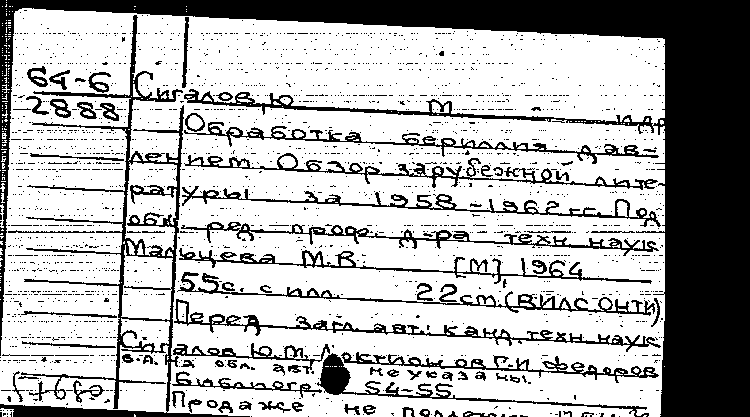 64-6
2888
Сигалов, Ю М и др
Обработка бериллия дав-
лением. Обзор зарубежной лите-
ратуры за 1958-1962 гг. Под
общ. ред. проф. д-ра техн. наук
Мальцева М.В. [М], 1964
55с. с илл. 22см. (ВИЛС. ОНТИ)
Перед загл. авт.: канд. техн. наук
Сигалов Ю.М., Локтионов Г.И, Федоров
В.А. На обл. авт. не указаны.
Библиогр. 54-55
Продаже не